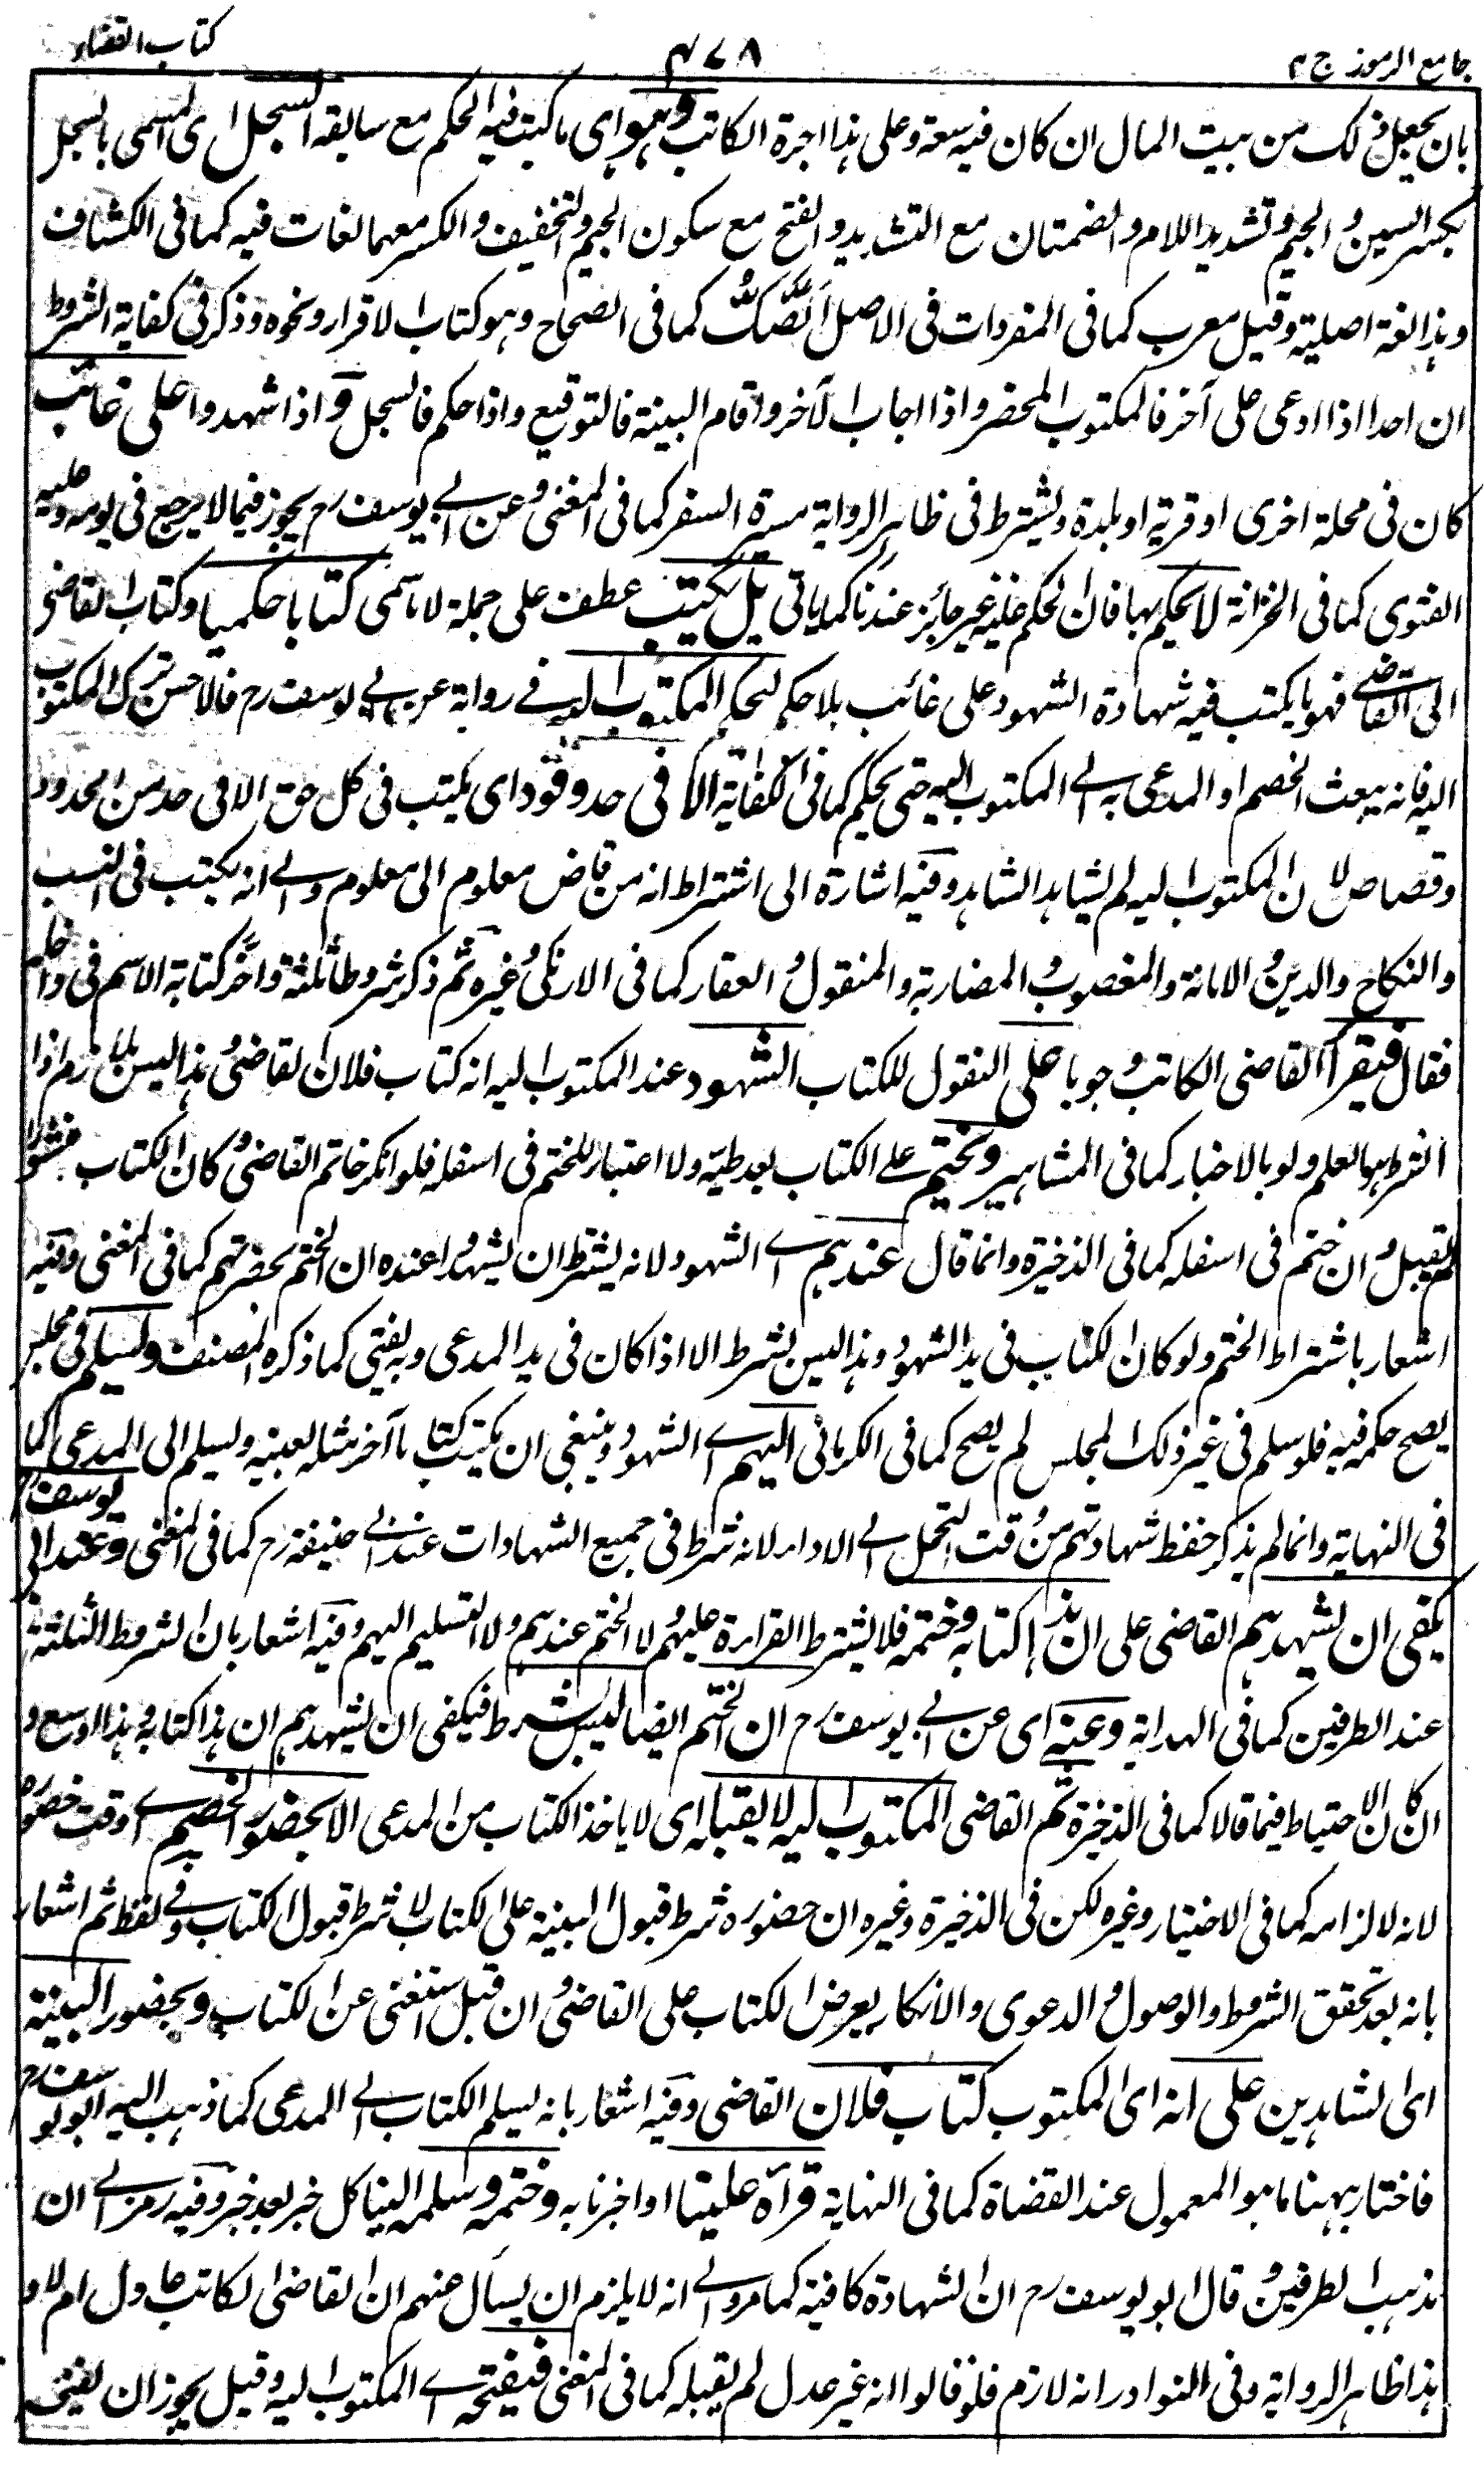 جامع الرموز ج ٢
٤٧٨
كتاب القضاء
بان يجعل ذلك من بيت المال ان كان فيه سعة وعلى هذا اجرة الكاتب وهو اى ما كتب فيه الحكم مع سابقه السجل اى المسمى بالسجل
بكسر السين والجيم وتشديد اللام والضمتان مع التشديد والفتح مع سكون الجيم والتخفيف والكسر معهما لغات فيه كما فى الكشاف
وهذا لغة اصلية وقيل معرب كما فى المفردات فى الاصل اَلصَّكُّ كما فى الصحاح وهو كتاب الاقرار ونحوه وذكر فى كفاية الشروط
ان احدا اذا ادعى على آخر فالمكتوب المحضر واذا اجاب الآخر واقام البينة فالتوقيع واذا حكم فالسجل و اذا شهدوا على غائب
كان فى محلة اخرى او قرية او بلدة ويشترط فى ظاهر الرواية مسيرة السفر كما فى المغنى وعن ابي يوسف رح يجوز فيما لا يرجع فى يومه وعليه
الفتوى كما فى الخزانة لا يحكم بها فان الحكم عليه غير جائز عندنا كما ياتى بل يكتب عطف على جملة لا تاسمى كتابا حكميا وكتاب القاضى
الى القاضے فهو ما يكتب فيه شهادة الشهود على غائب بلا حكم ليحكم المكتوب اليه فے رواية عن ابي يوسف رح فالاحسن ترك المكتوب
اليه فانه يبعث الخصم او المدعى به الے المكتوب اليه حتى يحكم كما فى الكفاية الا فى حد وقود اى يكتب فى كل حق الا فى حد من الحدود
وقصاص لان المكتوب اليه لم يشاهد الشاهد وفيه اشارة الى اشتراط انه من قاض معلوم الى معلوم والے انه يكتب فى النسب
والنكاح والدين والامانة والمغصوب والمضاربة والمنقول والعقار كما فى الارنكى وغيره ثم ذكر شروطا ثلثة واخّر كتابة الاسم فى داخله
فقال فيقرأ القاضى الكاتب وجوبا على النقول للكتاب الشهود عند المكتوب اليه انه كتاب فلان القاضى وهذا ليس بلازم اذا
الشرط هو العلم ولو بالاخبار كما فى المشاهير ويختم على الكتاب بعد طيّه ولا اعتبار للختم فى اسفله فلو انكر خاتم القاضى وكان الكتاب منشورا
لم يقبل وان ختم فى اسفله كما فى الذخيرة وانما قال عندهم اے الشهود لانه يشترط ان يشهدوا عنده ان الختم بحضرتهم كما فى المغنى وفيه
اشعار باشتراط الختم ولو كان الكتاب فى يد الشهود وهذا ليس بشرط الا اذا كان فى يد المدعى وبه يفتى كما ذكره المصنف ويسلم فى مجلس
يصح حكمه فيه فلو سلم فى غير ذلك المجلس لم يصح كما فى الكرمانى اليهم اے الشهود وينبغى ان يكتب كتابا آخر مثله بعينه ويسلم الى المدعى كما
فى النهاية وانما لم يذكر حفظ شهادتهم من وقت التحمل الے الاداء لانه شرط فى جميع الشهادات عند ابي حنيفة رح كما فى المغنى وعند ابى يوسف رح
يكفى ان يشهدهم القاضى على ان هذا كتابه وختمه فلا يشترط القراءة عليهم ولا الختم عندهم ولا التسليم اليهم وفيه اشعار بان الشروط الثلثة
عند الطرفين كما فى الهداية وعنه اى عن ابي يوسف رح ان الختم ايضا ليس بشرط فيكفى ان يشهدهم ان هذا كتابه وهذا اوسع و
ان كان الاحتياط فيما قالا كما فى الذخيرة ثم القاضى المكتوب اليه لا يقبله اى لا ياخذ الكتاب من المدعى الا بحضور الخصم اے وقت حضوره
لانه لالزامه كما فى الاختيار وغيره لكن فى الذخيرة وغيره ان حضوره شرط قبول البينة على الكتاب لا شرط قبول الكتاب وفى لفظ ثم اشعار
بانه بعد تحقق الشروط والوصول والدعوى والانكار يعرض الكتاب على القاضى وان قبل استغنى عن الكتاب وبحضور البينة
اى الشاهدين على انه اى المكتوب كتاب فلان القاضى وفيه اشعار بانه يسلم الكتاب الے المدعى كما ذهب اليه ابو يوسف رح
فاختار ههنا ما هو المعمول عند القضاة كما فى النهاية قرأه علينا او اخبرنا به وختمه وسلمه الينا كل خبر بعد خبر وفيه رمز الے ان
مذهب الطرفين وقال ابو يوسف رح ان الشهادة كافية كما مر والے انه لا يلزم ان يسأل عنهم ان القاضى الكاتب عادل ام لا و
هذا ظاهر الرواية وفى النوادر انه لازم فلو قالوا انه غير عدل لم يقبله كما فى المغنى فيفتحه اے المكتوب اليه وقيل يجوز ان يفتى